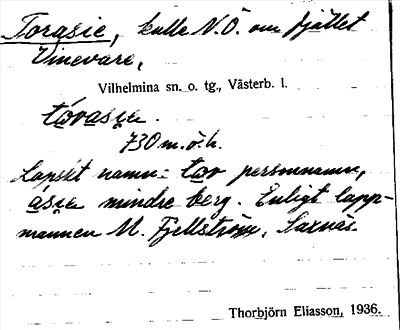 Torasie, kulle N.Ö. om fjället
Vinevare,
Vilhelmina sn. o. tg., Västerb. l.
tórasi̯e.
730 m.ö.h.
Lapskt namn: tor personnamn,
ási̯e mindre berg. Enligt lapp-
mannen M. Fjellström, Saxnäs.
Thorbjörn Eliasson, 1936.